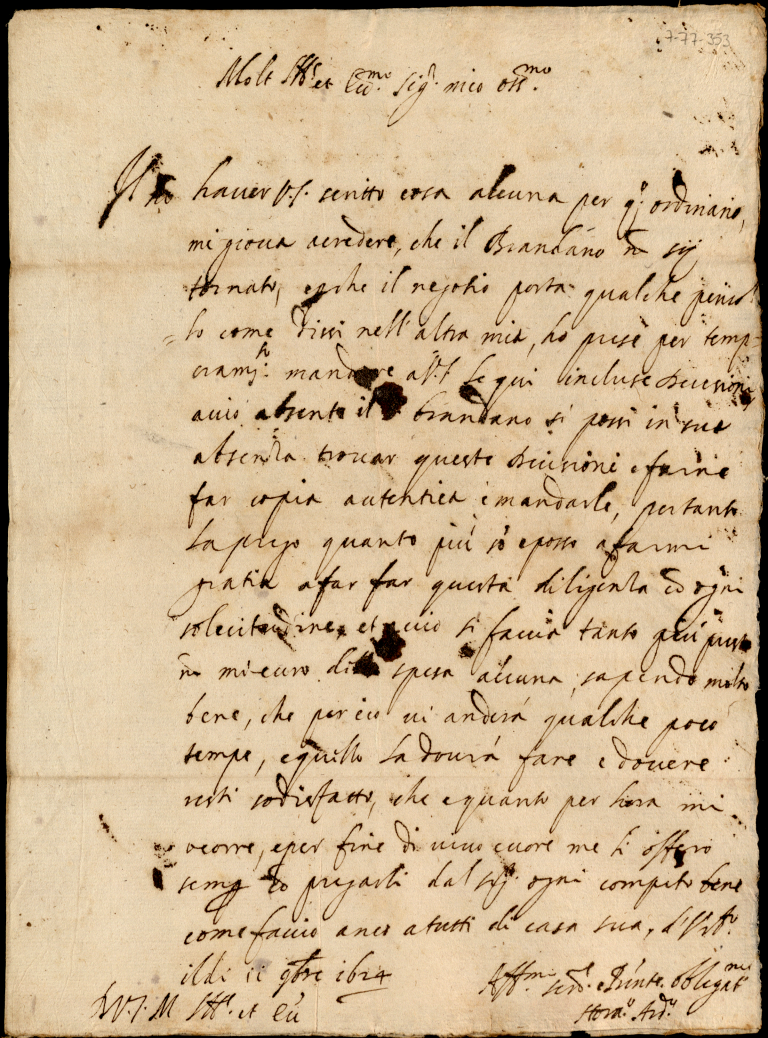 7-77-353
Molt Ill.re et Ecc.mo Sig.r mio oss.mo
Il no haver V.S. scritto cosa alcuna per q.o ordinario,
mi giova a credere, che il Brandano n sij
tornato, e che il negotio porta qualche perico-
lo come dissi nell'altra mia, ho preso per temp
mandare a V.S. le qui incluse Decisioni,
acciò absente il Brandano si possi in sua
absenza trovar queste Decisioni e farne
far copia autentica e mandarle, pertanto
La prego quanto più so e posso a farmi
gratia a far far questa diligenza co ogni
solecitudine, et acciò si faccia tanto più presto
n mi curo di spesa alcuna, sapendo molto
bene, che per ciò vi anderà qualche poco
tempo, e quello La dourà fare e douere
resti sodisfatto, che e quanto per hora mi
ocorre, e per fine di vivo cuore me li offero
semp co pregarli dal Sig.r ogni compito bene
come faccio anco a tutti di casa sua, d'
il dì 11 9bre 1624
D V.S. M Ill.re et Ecc
Aff.mo ser.re e obligat.mo